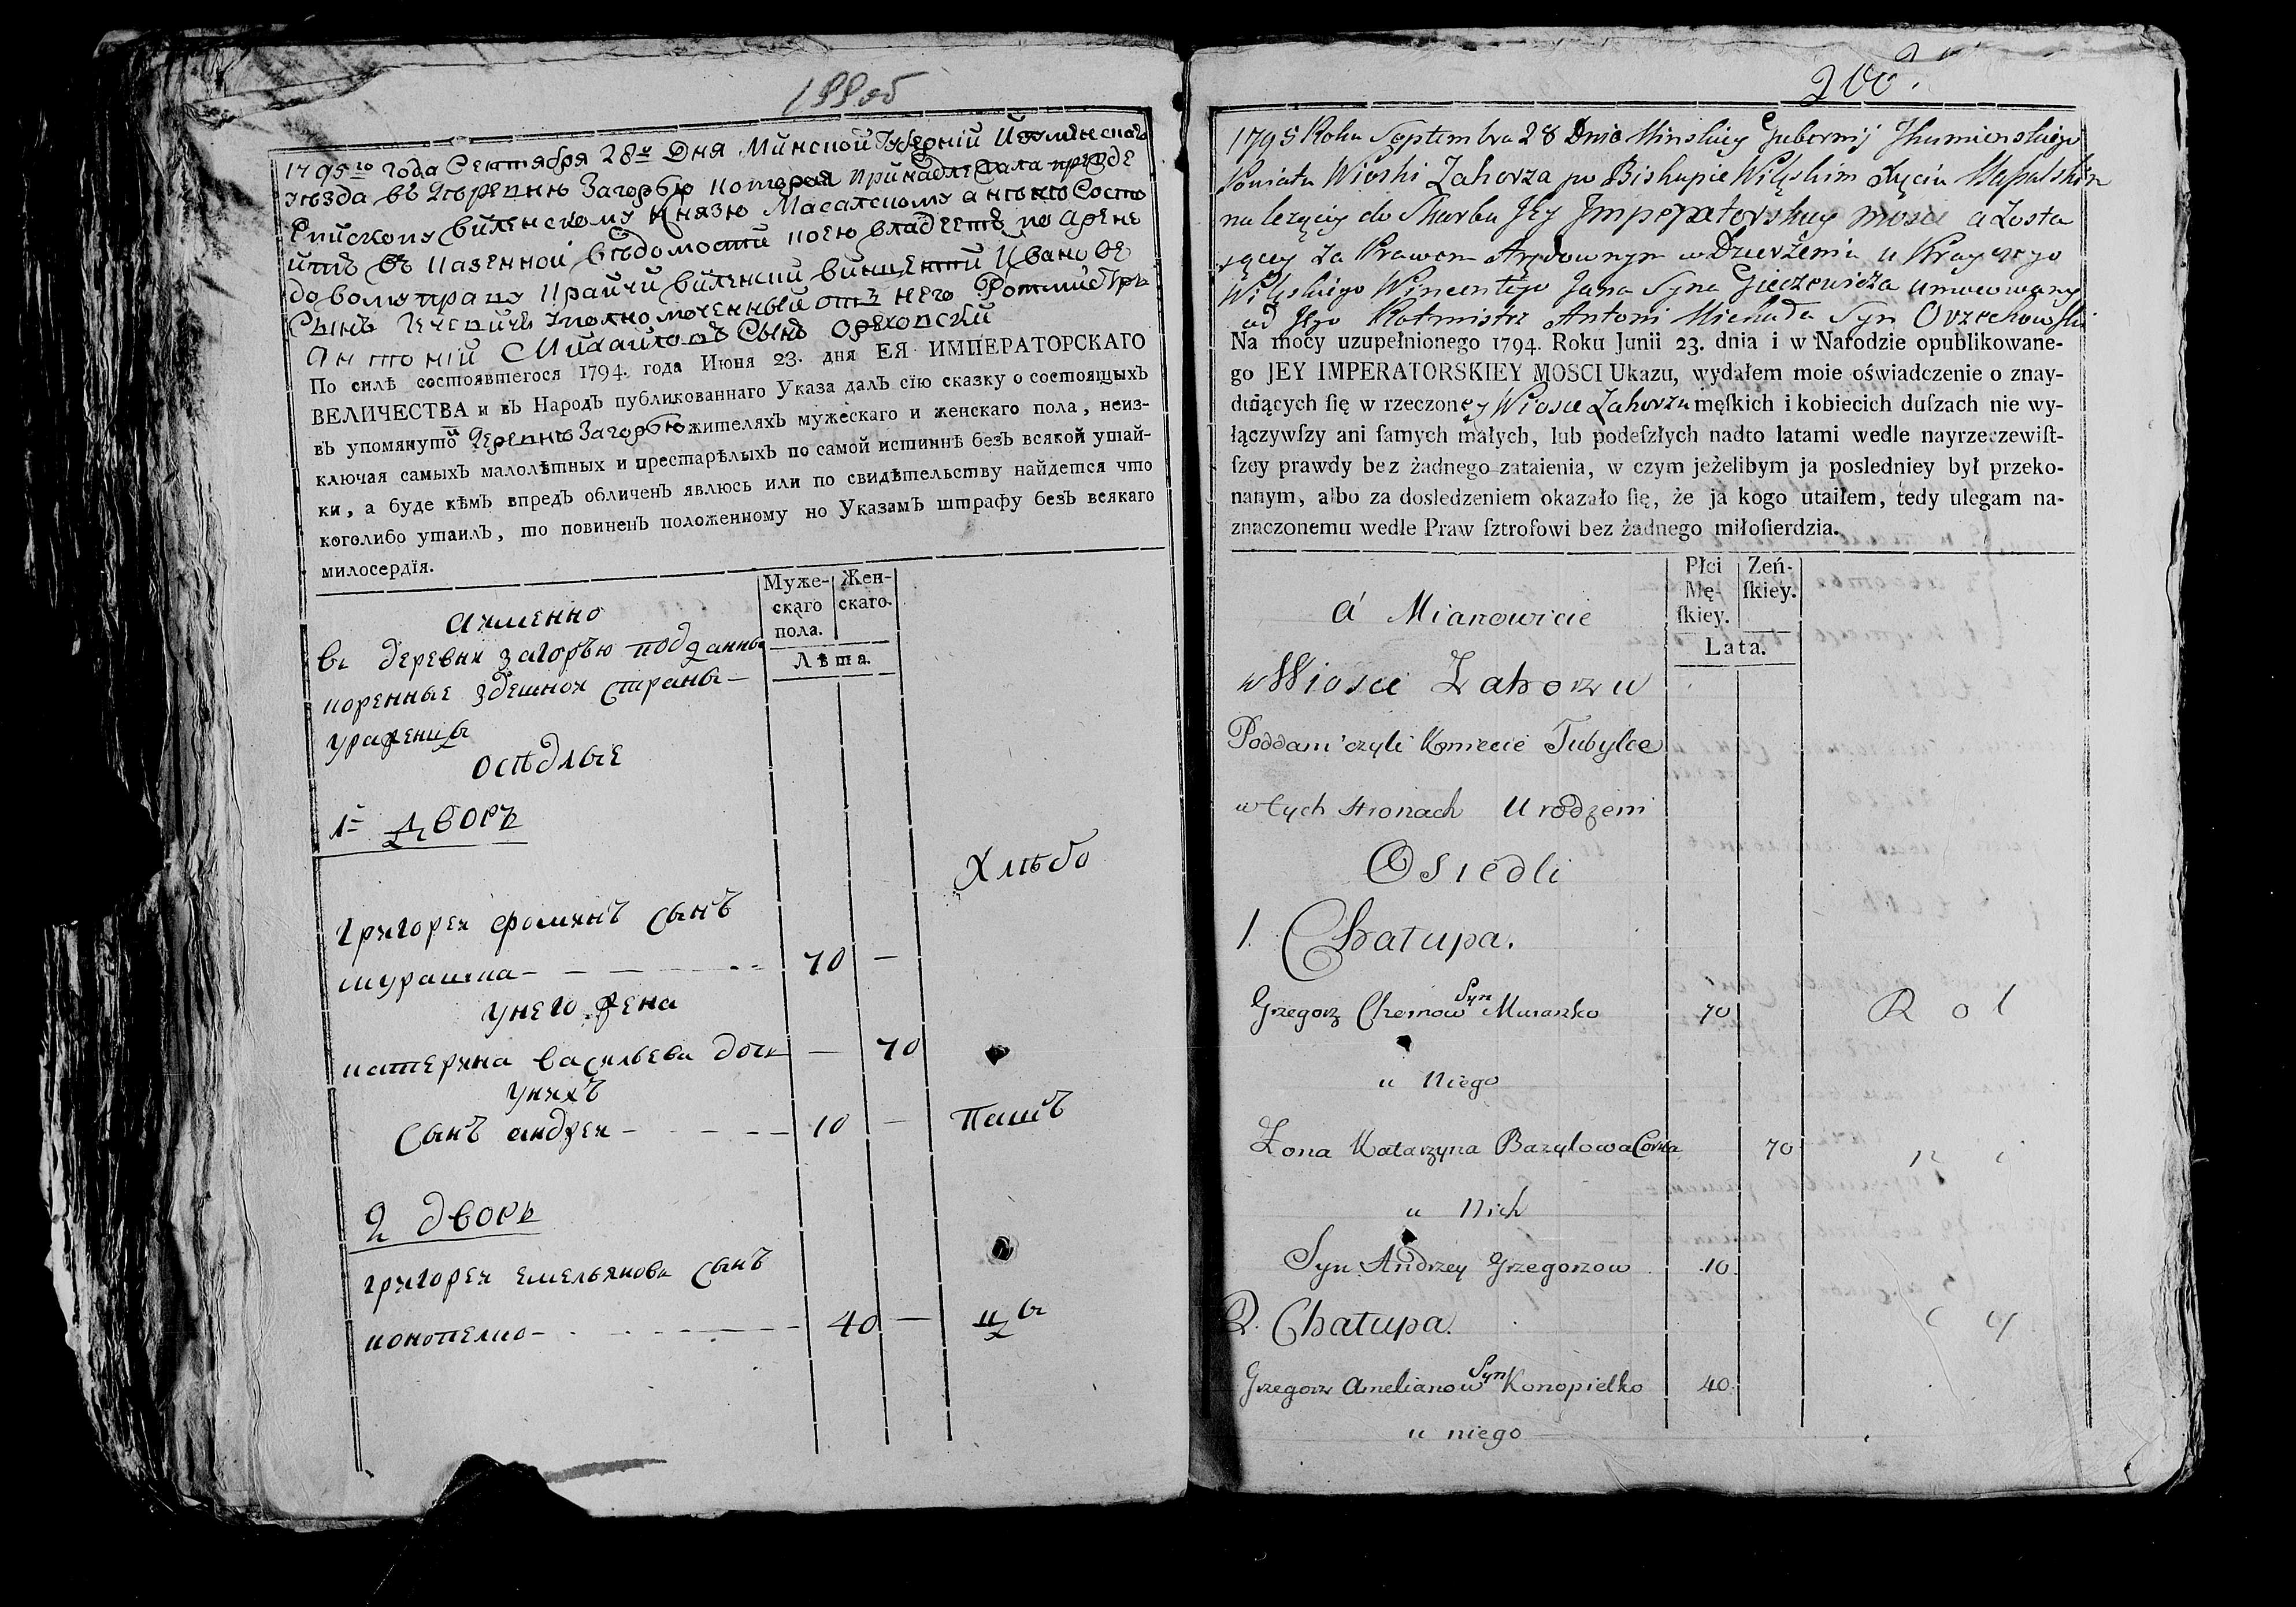 199об
1795го года Сентября 28го Дня Минской Губерніи Игуменскаго
уѣзда въ Деревню Загорью которая принадлежала прежде
Епископу Виленскому Князю Масалскому а нынѣ Состо
итъ въ Казенной вѣдомости коею владеетъ по Арен
довому праву Крайчи виленскій винцентій Ивановъ
Сынъ Гечевичъ уполномоченный отъ него Ротмистръ
Антоній Михайловъ Сынъ Ореховскій
По силѣ состоявшегося 1794. года Июня 23. дня ЕЯ ИМПЕРАТОРСКАГО
ВЕЛИЧЕСТВА и въ Народъ публикованнаго Указа далъ сїю сказку о состоящыхъ
въ упомянутой Деревнѣ Загорью жителяхъ мужескаго и женскаго пола, неиз-
ключая самыхъ малолѣтныхъ и престарѣлыхъ по самой истиннѣ безъ всякой утай-
ки, а буде кѣмъ впредъ обличенъ явлюсь или по свидѣтельству найдется что
коголибо утаилъ, то повиненъ положенному по Указамъ штрафу безъ всякаго
милосердїя.
Муже-
скаго
пола.
Жен-
скаго.
Лѣта.
Аименно
въ деревни загорью подданны
коренные здешной страны
уроженцы
осѣдлые
1й дворъ
Хлѣбо
григореи фоминъ сынъ
мурашка 70 —
унего жена
катерина васильева дочь — 70
унихъ
сынъ андреи 10 — Пашъ
2 дворъ
григореи емельяновъ сынъ
конопелко 40 — цы
200.
1795 Roku Septembra 28 Dnia Minskiey Gubernij Ihumienskiego
Powiatu Wioski Zahorza po Biskupie Wileńskim Xięciu Massalskim
należącey do Skarbu Jey Imperatorskiey mosci a Zosta
jącey za Prawem Arędownym w Dzierżeniu u Krayczego
Wileńskiego Wincentego Jana Syna Gieczewicza umocowany
od Jego Rotmistrz Antoni Michała Syn Orzechowski
Na mocy uzupełnionego 1794. Roku Junii 23. dnia i w Narodzie opublikowane-
go JEY IMPERATORSKIEY MOSCI Ukazu, wydałem moie oświadczenie o znay-
duiących ſię w rzeczoney Wiosce Zahorzu męſkich i kobiecich duſzach nie wy-
łączywſzy ani ſamych małych, lub podeſzłych nadto latami wedle nayrzeczewiſt-
ſzey prawdy bez żadnego zataienia, w czym jeżelibym ja posledniey był przeko-
nanym, albo za dosledzeniem okazało ſię, że ja kogo utaiłem, tedy ulegam na-
znaczonemu wedle Praw ſztrofowi bez żadnego miłoſierdzia.
Płci
Mę-
ſkiey.
Zeń-
ſkiey.
Lata.
á Mianowicie
w Wiosce Zahorzu
Poddani czyli Kmiecie Tubylce
w tych stronach Urodzeni
Osiedli
1. Chałupa.
Grzegorz Chemow Syn Muraszko 70 Rol
u Niego
Zona Katarzyna Bazylowa Corka 70 n i
u Nich
Syn Andrzey Grzegorzow 10
2. Chałupa. c y
Grzegorz Amelianow Syn Konopielko 40
u niego